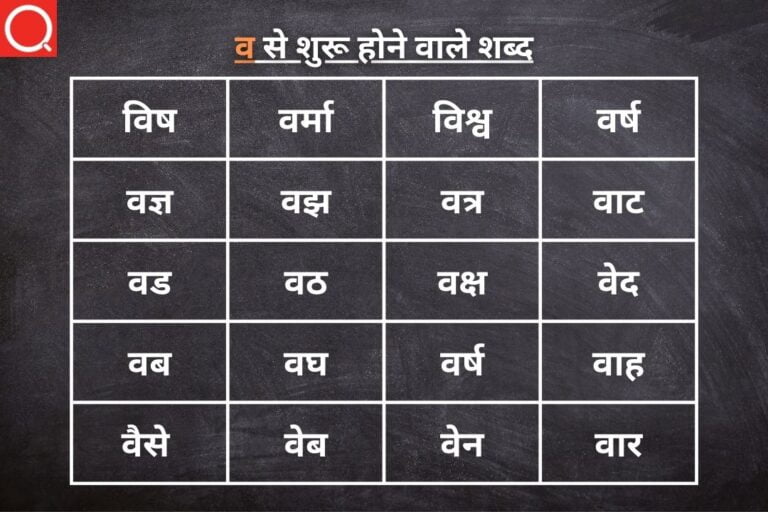 व से शुरू होने वाले शब्द
विष वर्मा विश्व वर्ष
वज्ञ वझ वत्र वाट
वड वठ वक्ष वेद
वब वघ वर्ष वाह
वैसे वेब वेन वार